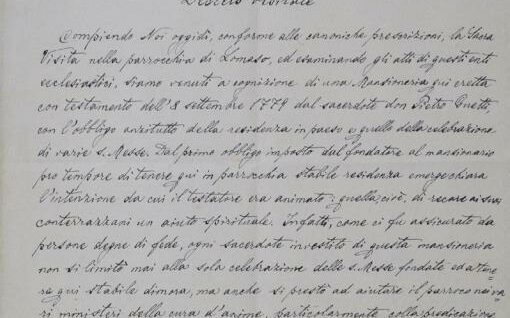 Decreto Visitale
Compiendo Noi oggidì, conforme alle canoniche prescrizioni, la Sacra
Visita nella parrocchia di Lomaso, ed esaminando gli atti di questi enti
ecclesiastici, siamo venuti a cognizione di una Mansioneria qui eretta
con testamento dell'8 settembre 1779 dal sacerdote don Pietro
con l'obbligo anzitutto della residenza in paese e quello della celebrazione
di varie s. Messe. Dal primo obbligo imposto dal fondatore al mansionario
pro tempore di tenere qui in parrocchia stabile residenza emerge chiara
l'intenzione da cui il testatore era animato: quella cioè, di recare ai suoi
conterrazzani un aiuto spirituale. Infatti, come ci fu assicurato da
persone degne di fede, ogni sacerdote investito di questa mansioneria
non si limitò mai alla sola celebrazione delle s. Messe fondate ed a tene-
re qui stabile dimora, ma anche si prestò ad aiutare il parroco nei va-
ri ministeri della cura d'anime, particolarmente colla predicazione